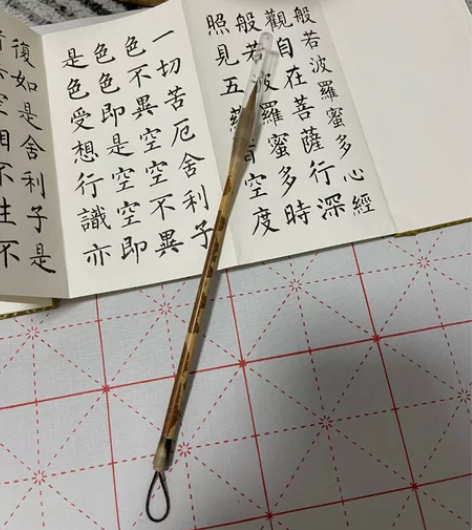 般若波羅蜜多心經
觀自在菩薩行深
般若波羅蜜多時
照見五蘊皆空度
一切苦厄舍利子
色不異空空不異
色色即是空空即
是色受想行識亦
復如是舍利子是
空相不生不